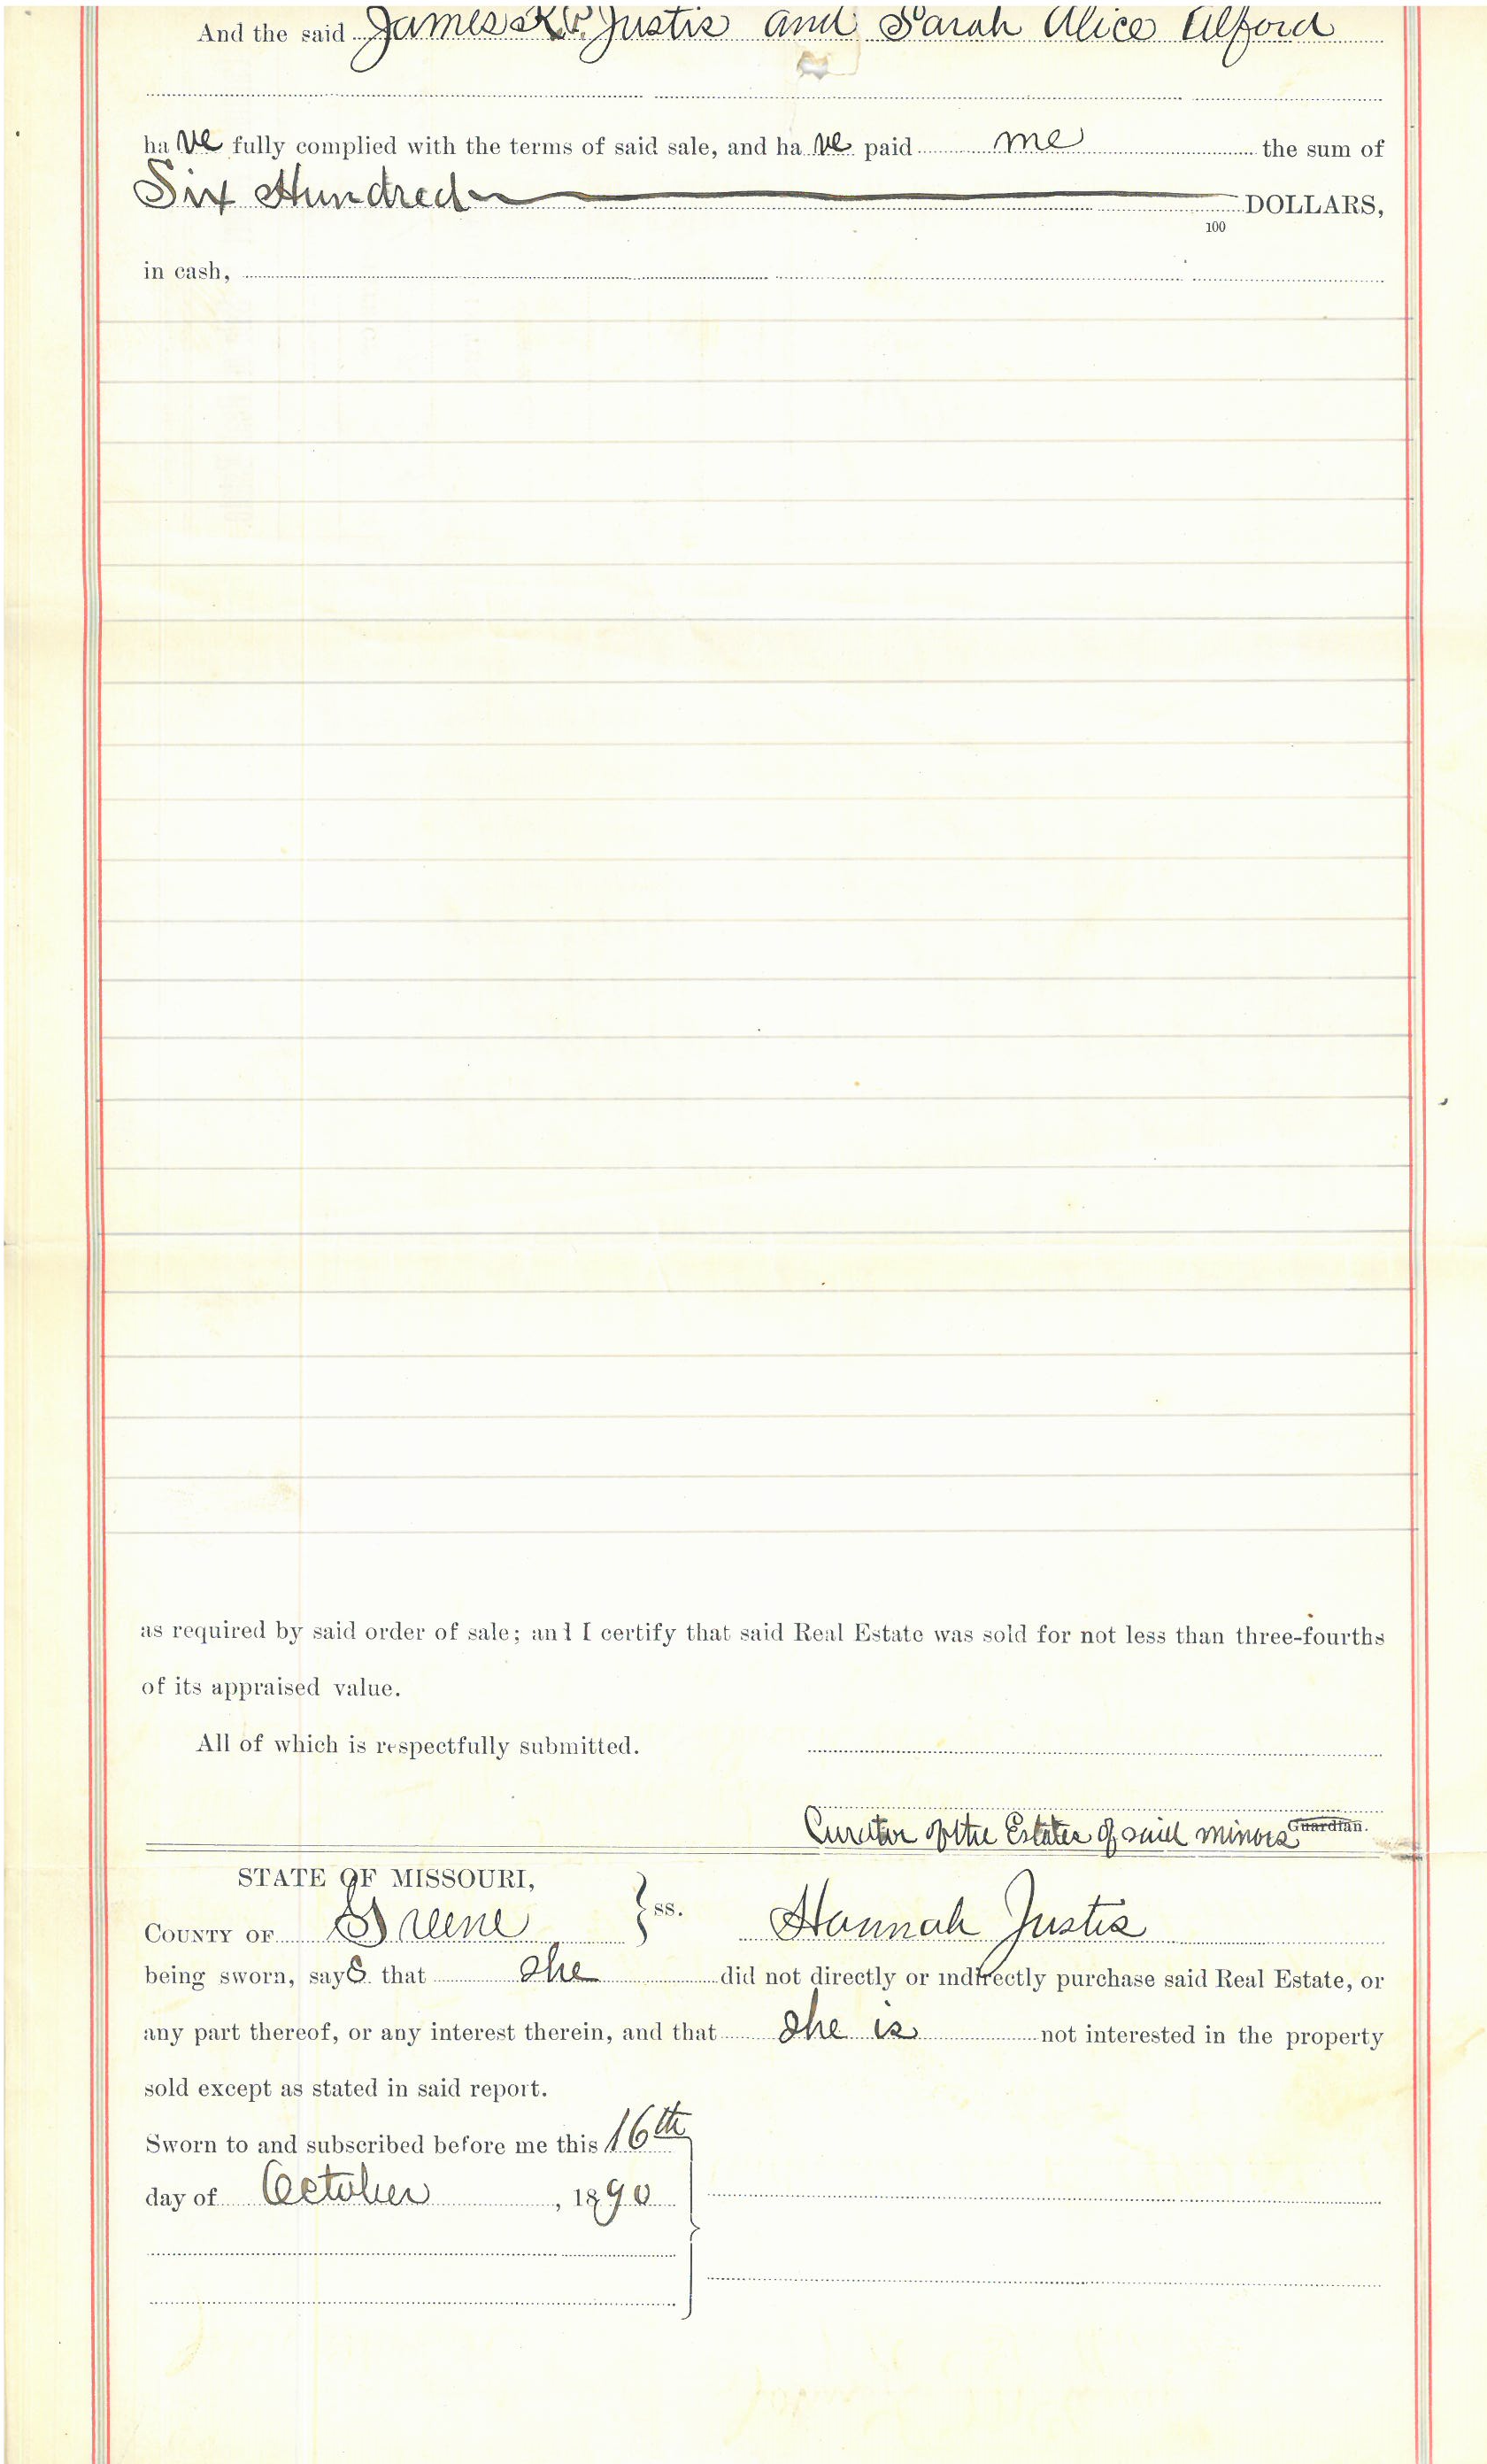 And the said James K. P. Justis and Sarah Alice Alford
have fully complied with the terms of said sale, and have paid me the sum of
Six Hundred DOLLARS,
100
in cash,
as required by said order of sale; and I certify that said Real Estate was sold for not less than three-fourths
of its appraised value.
All of which is respectfully submitted.
Curator of the Estates of said minors Guardian.
STATE OF MISSOURI,
COUNTY OF Greene } ss. Hannah Justis
being sworn, says that she did not directly or indirectly purchase said Real Estate, or
any part thereof, or any interest therein, and that she is not interested in the property
sold except as stated in said report.
Sworn to and subscribed before me this 16th
day of October, 1890